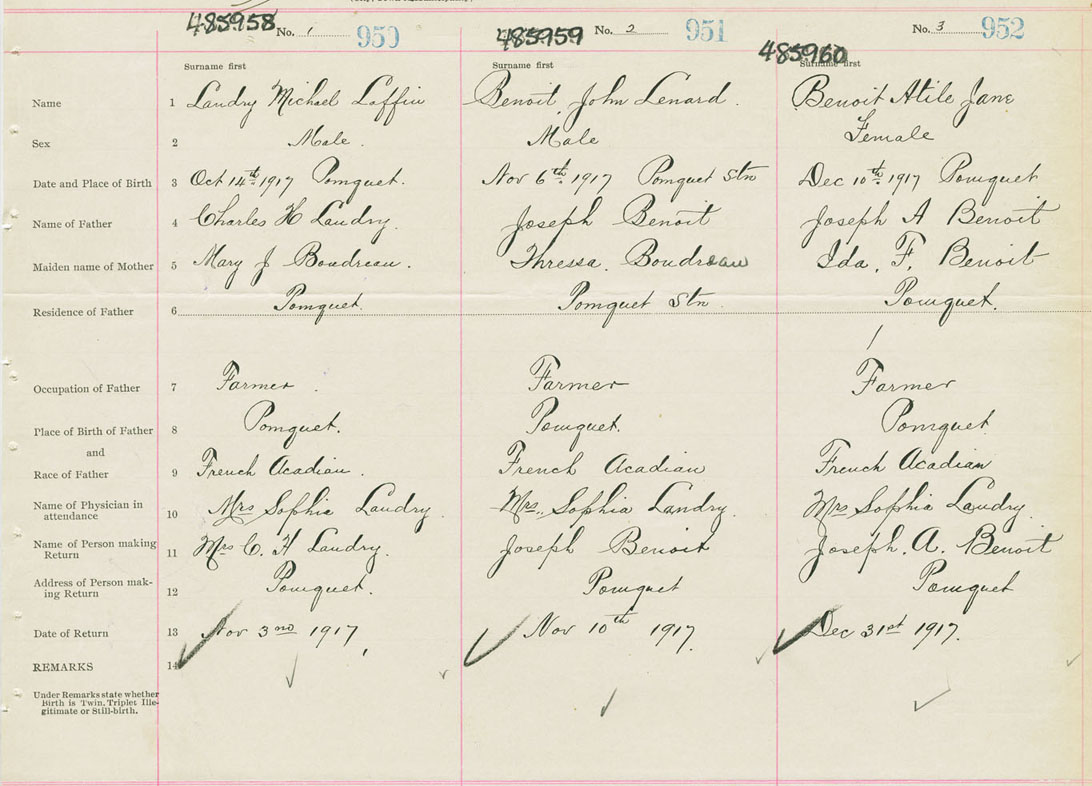 485958 No. 1 950 485959 No. 2 951 No. 3 952
485960
Surname first Surname first Surname first
Name 1 Landry Michael Laffin Benoit, John Lenard. Benoit Atile Jane
Sex 2 Male. Male Female
Date and Place of Birth 3 Oct 14th 1917 Pomquet. Nov 6th 1917 Pomquet Stn Dec 10th 1917 Pomquet
Name of Father 4 Charles H Landry. Joseph Benoit Joseph A Benoit
Maiden name of Mother 5 Mary J Boudreau. Thressa. Boudreau Ida. F. Benoit
Residence of Father 6 Pomquet. Pomquet Stn Pomquet.
Occupation of Father 7 Farmer. Farmer Farmer
Place of Birth of Father 8 Pomquet. Pomquet. Pomquet
and
Race of Father 9 French Acadian. French Acadian French Acadian
Name of Physician in
attendance 10 Mrs Sophia Landry. Mrs. Sophia Landry. Mrs Sophia Landry.
Name of Person making
Return 11 Mrs C. H Landry. Joseph Benoit Joseph. A. Benoit
Address of Person mak-
ing Return 12 Pomquet. Pomquet Pomquet
Date of Return 13 Nov 3nd 1917, Nov 10th 1917. Dec 31st 1917.
REMARKS 14
Under Remarks state whether
Birth is Twin, Triplet Ille-
gitimate or Still-birth.